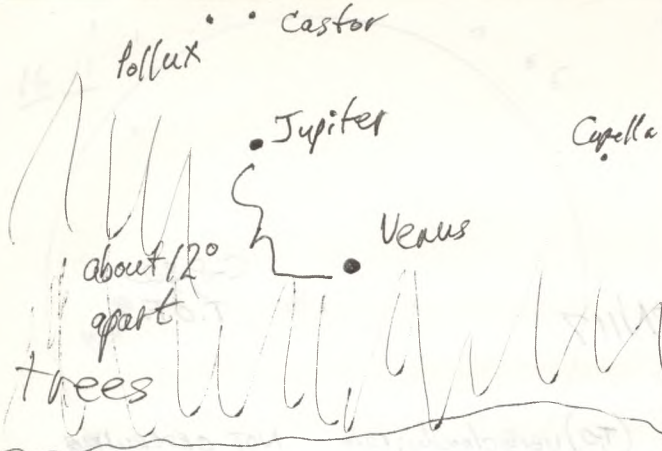 Castor
Pollux
Jupiter
Capella
Venus
about 12°
apart
trees